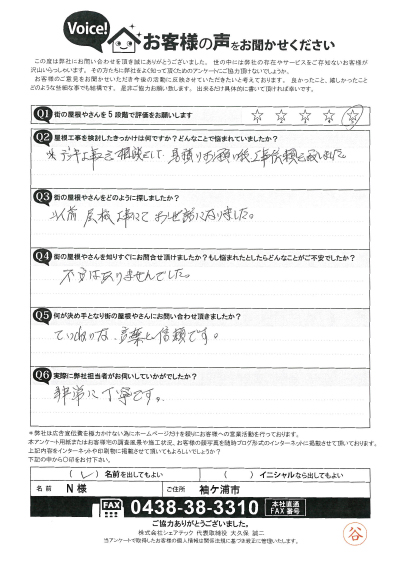 Voice!
お客様の声をお聞かせください
この度は弊社にお問い合わせを頂き誠にありがとうございました。世の中には弊社の存在やサービスをご存知ないお客様が
沢山いらっしゃいます。その方たちに弊社をよく知って頂くためのアンケートにご協力頂けないでしょうか。
お客様のご意見をお聞かせいただき今後の活動に反映させていただきたいと考えております。良かったこと、嬉しかったこと
どのような些細な事でも結構です。是非ご協力お願い致します。出来るだけ具体的に書いて頂ければ幸いです。
Q1 街の屋根やさんを5段階で評価をお願いします
☆ ☆ ☆ ☆ ☆
Q2 屋根工事を検討したきっかけは何ですか?どんなことで悩まれていましたか?
デッキ工事を相談して、見積りお願い後工事依頼を致しました。
Q3 街の屋根やさんをどのように探しましたか?
以前 屋根工事にてお世話になりました。
Q4 街の屋根やさんを知りすぐにお問合せ頂けましたか?もし悩まれたとしたらどんなことがご不安でしたか?
不安はありませんでした。
Q5 何が決め手となり街の屋根やさんにお問い合わせ頂きましたか?
ていねいな、言葉と信頼です。
Q6 実際に弊社担当者がお伺いしていかがでしたか?
非常に丁寧です。
*弊社は広告宣伝費を極力かけない為にホームページだけを頼りにお客様への営業活動を行っております。
本アンケート用紙またはお客様宅の調査風景や施工状況、お客様の顔写真を随時ブログ形式のインターネットに掲載させて頂いております。
上記内容をインターネットや印刷物に掲載させて頂いてもよろしいでしょうか?
下記の中から〇印をお付け下さい。
( ✓ ) 名前を出してもよい ( ) イニシャルなら出してもよい
名前 N様 ご住所 袖ケ浦市
FAX 0438-38-3310 本社直通 FAX番号
ご協力ありがとうございました。
株式会社シェアテック 代表取締役 大久保 誠二
当アンケートで取得したお客様の個人情報は関係法規に基づき厳正に管理いたします。
谷